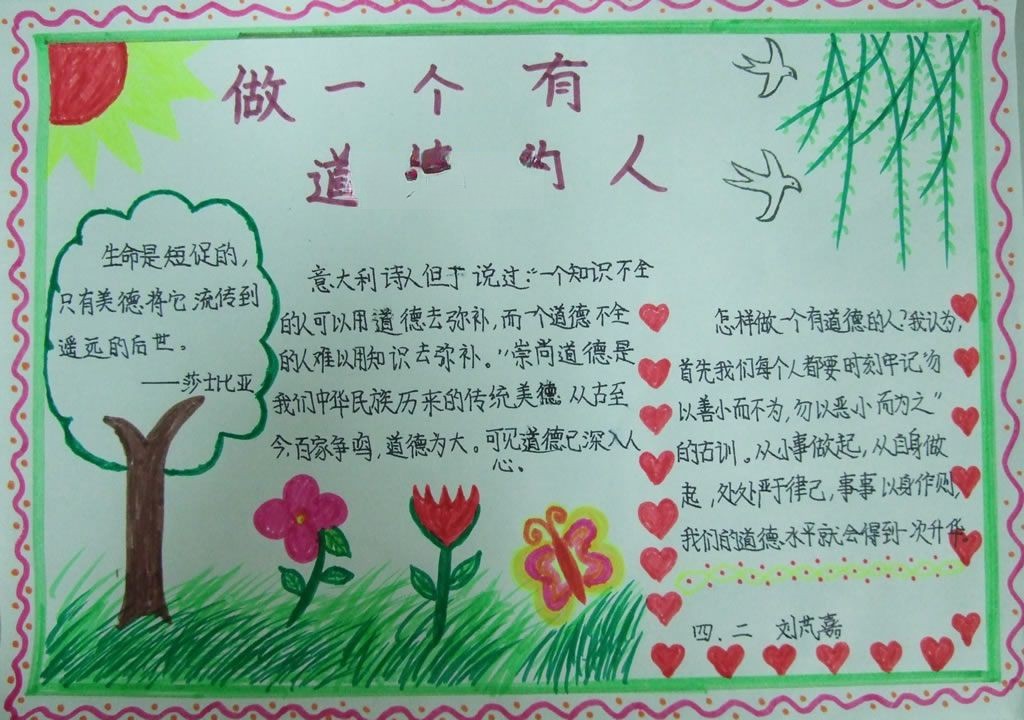 做一个有
道德的人
生命是短促的，
只有美德将它流传到
遥远的后世。
——莎士比亚
意大利诗人但丁说过：“一个知识不全
的人可以用道德去弥补，而一个道德不全
的人难以用知识去弥补。”崇尚道德是
我们中华民族历来的传统美德。从古至
今，百家争鸣，道德为大。可见道德已深入人
心。
怎样做一个有道德的人？我认为，
首先我们每个人都要时刻牢记“勿
以善小而不为，勿以恶小而为之”
的古训。从小事做起，从自身做
起，处处严于律己，事事以身作则，
我们的道德水平就会得到一次升华。
四．二 刘芃嘉